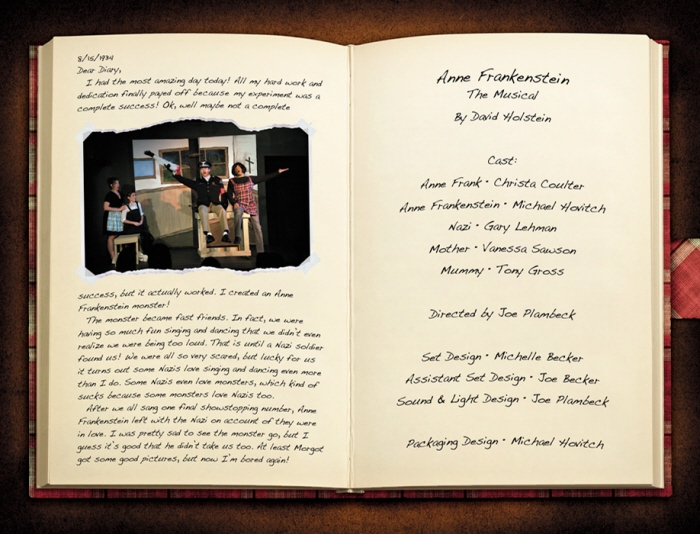 8/15/1934
Dear Diary,
I had the most amazing day today! All my hard work and
dedication finally payed off because my experiment was a
complete success! Ok, well maybe not a complete
success, but it actually worked. I created an Anne
Frankenstein monster!
The monster became fast friends. In fact, we were
having so much fun singing and dancing that we didn't even
realize we were being too loud. That is until a Nazi soldier
found us! We were all so very scared, but lucky for us
it turns out some Nazis love singing and dancing even more
than I do. Some Nazis even love monsters, which kind of
sucks because some monsters love Nazis too.
After we all sang one final showstopping number, Anne
Frankenstein left with the Nazi on account of they were
in love. I was pretty sad to see the monster go, but I
guess it's good that he didn't take us too. At least Margot
got some good pictures, but now I'm bored again!
Anne Frankenstein
The Musical
By David Holstein
Cast:
Anne Frank • Christa Coulter
Anne Frankenstein • Michael Hovitch
Nazi • Gary Lehman
Mother • Vanessa Sawson
Mummy • Tony Gross
Directed by Joe Plambeck
Set Design • Michelle Becker
Assistant Set Design • Joe Becker
Sound & Light Design • Joe Plambeck
Packaging Design • Michael Hovitch